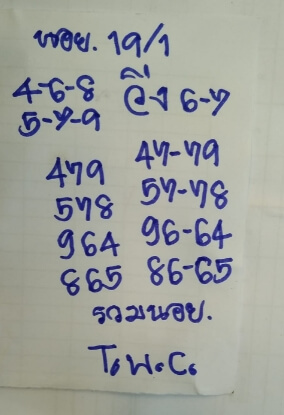 หอย. 19/1
4-6-8 วิ่ง 6-7
5-7-9
479 47-79
578 57-78
964 96-64
865 86-65
รวมนอย.
T. พ. C.